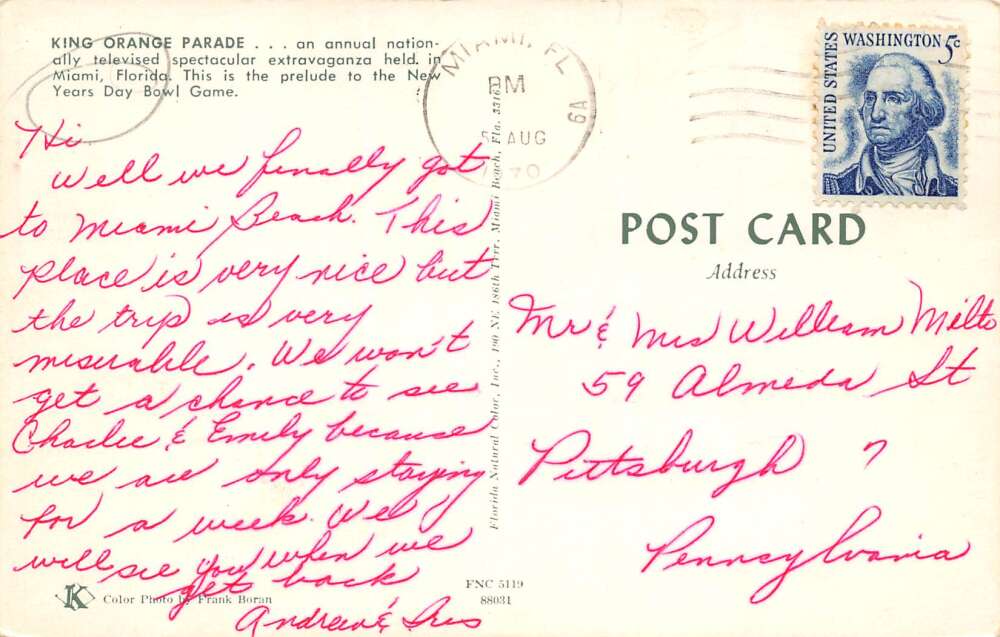 KING ORANGE PARADE . . . an annual nation-
ally televised spectacular extravaganza held in
Miami, Florida. This is the prelude to the New
Years Day Bowl Game.
Hi
Well we finally got
to Miami Beach. This
place is very nice but
the trip is very
miserable. We won't
get a chance to see
Charlie & Emily because
we are only staying
for a week. We
will see you when we
get back
Andrew & Iris
K Color Photo by Frank Boran
FNC 5119
88031
Florida Natural Color, Inc., 190 NE 186th Terr. Miami Beach, Fla. 33162
MIAMI, FL
PM
5 AUG
1970
6A
UNITED STATES
WASHINGTON 5c
POST CARD
Address
Mr & Mrs William Milto
59 Almeda St
Pittsburgh 7
Pennsylvania